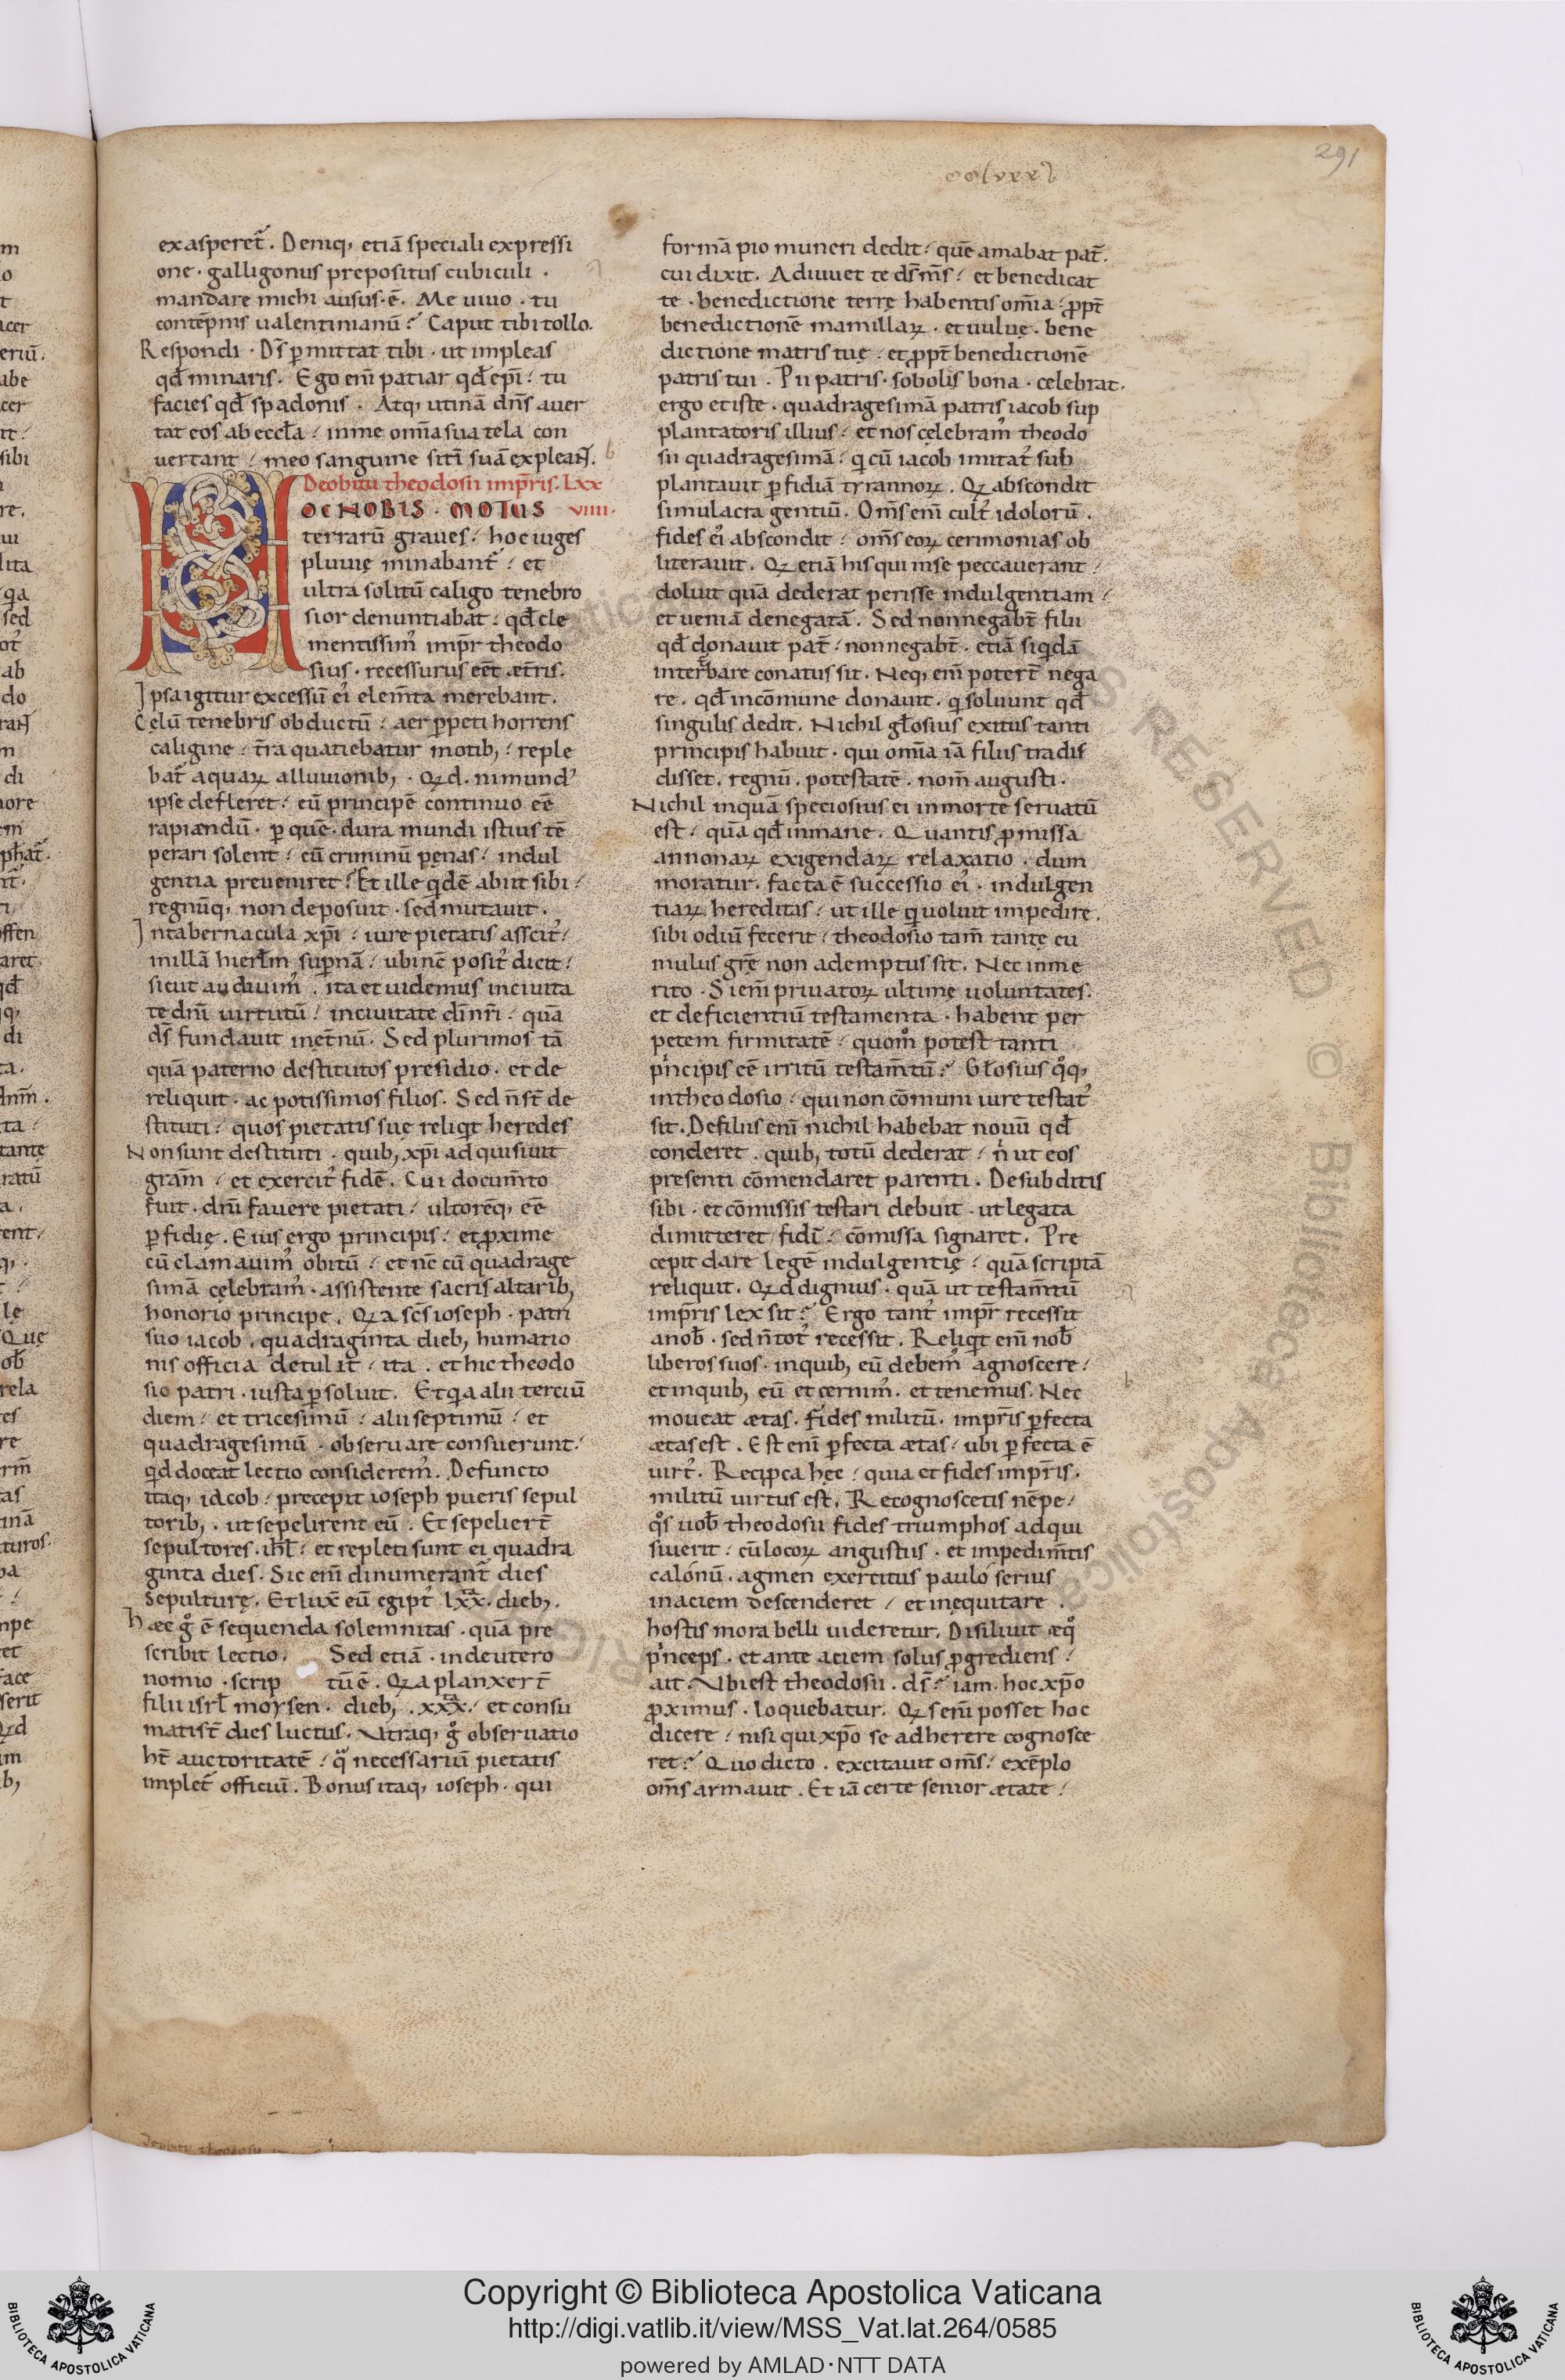 291
cclxxxi
exasperet̃. Deniq; etiā speciali expressi
one · galligonus prepositus cubiculi ·
mandare michi ausus · ē. Me uiuo · tu
contēpnis ualentinianū? Caput tibi tollo.
Respondi · Ds̄ p̱mittat tibi · ut impleas
qđ minaris. Ego em̄ patiar qđ epi̅ : tu
facies qđ spadonis . Atq; utinā dn̄s auer
tat eos ab eccl̄a : inme om̄ia sua tela con
uertant : meo sanguine sitī suā expleant.
De obitu theodosii imp̄ris. Lxx
viiii.
OC NOBIS · MOTUS
terrarū graues : hoc iuges
pluuię minabant̃ : et
ultra solitū caligo tenebro
sior denuntiabat : qđ cle
mentissim᾽ imp̄r theodo
sius · recessurus eēt · æt̄ris.
Ipsa igitur excessū ei᾽ elem̄ta merebant.
Cęlū tenebris obductū : aer p̱peti horrens
caligine : t̄ra quatiebatur motib; : reple
bat̃ aquaꝝ alluuionib; · Qd̄. ni mund᾽
ipse defleret : eū principē continuo eē
rapiændū · p̱ quē · dura mundi istius tē
perari solent : cū criminū pęnas : indul
gentia preueniret? Et ille qͥdē abiit sibi :
regnūq; non deposuit · sed mutauit .
In tabernacula xp̄i : iure pietatis asscit᾽ :
in illā hierl̄m sup̱nā : ubi nc̄ posit᾽ dicit :
sicut audiuim᾽ . ita et uidemus in ciuita
te dn̄i uirtutū : in ciuitate dī nr̄i : quā
ds̄ fundauit in et̄nū . Sed plurimos tā
quā paterno destitutos presidio . et de
reliquit · ac potissimos filios. Sed n̄ st̄ de
stituti : quos pietatis suę reliqͥt heredes
Non sunt destituti · quib; xp̄i adquisiuit
gram̄ : et exercit᾽ fidē. Cui docum̄to
fuit · dn̄i fauere pietati : ultorēq; eē
p̱fidię . Eius ergo principis : et ꝓxime
cū clamauim᾽ obitū : et nc̄ cū quadrage
simā cęlebram᾽ · assistente sacris altarib;
honorio principe . Qꝛa sc̄s ioseph · patri
suo iacob . quadraginta dieb; humatio
nis officia detulit : ita . et hic theodo
sio patri · iusta p̱soluit. Et qͥa alii terciū
diem : et tricesimū : alii septimū : et
quadragesimū · obseruare consuerunt:
qͥd doceat lectio considerem᾽. Defuncto
itaq; iacob : precepit ioseph pueris sepul
torib; . ut sepelirent eū . Et sepeliert̄
sepultores · ihl̄ : et repleti sunt ei quadra
ginta dies. Sic em̄ dinumerant̃ dies
sepulturę . Et lux̄ eū egipt᾽ lxx. dieb; .
Hæc gͦ ē sequenda solemnitas . quā pre
scribit lectio. Sed etiā · in deutero
nomio · scrip tū ē . Qꝛa planxert̄
filii isrl̄ moysen . dieb; . xxx : et consu
mati st̄ dies luctus. Utraq; gͦ obseruatio
ht̄ auctoritatē : qͣ necessariū pietatis
implet̃ officiū . Bonus itaq; ioseph · qui
formā pio muneri dedit : quē amabat pat̄.
cui dixit. Adiuuet te ds̄ m̄s : et benedicat
te · benedictione terrę habentis om̄ia : ꝓpt̄
benedictionē mamillaꝝ . et uuluę . bene
dictione matris tuę : et ꝓpt̄ benedictionē
patris tui . Pii patris . sobolis bona . celebrat.
ergo et iste . quadragesimā patris iacob sup
plantatoris illius : et nos cęlebram᾽ theodo
sii quadragesimā : qͥ cū iacob imitat᾽ sub
plantauit p̱fidiā tyrannoꝝ . Qꝛ abscondit
simulacra gentiū . Om̄s em̄ cult᾽ idolorū .
fides ei᾽ abscondit : om̄s eoꝝ cerimonias ob
literauit. Qꝛ etiā his qui in se peccauerant :
doluit quā dederat perisse indulgentiam :
et ueniā denegatā . Sed non negabt̄ filii
qđ donauit pat̄ : non negabt̄ . etiā si qͥdā
interͭbare conatus sit . Neq; em̄ potert̄ nega
re . qđ in cōmune donauit . qͥ soluunt qđ
singulis dedit. Nichil gl̄osius exitus tanti
principis habuit . qui om̄ia iā filiis tradi
disset . regnū . potestatē . nom̄ augusti .
Nichil inquā speciosius ei in morte seruatū
est : quā qđ inmane . Quantis ꝓmissa
annonaꝝ exigendaꝝ relaxatio . dum
moratur . facta ē successio ei᾽ . indulgen
tiaꝝ hereditas : ut ille qͥ uoluit impedire.
sibi odiū fecerit : theodosio tam̄ tantę cu
mulus gr̄ę non ademptus sit. Nec inme
rito . Si em̄ priuatoꝝ ultimę uoluntates.
et deficientiū testamenta . habent per
petem firmitatē : quomͦ potest tanti
pͥncipis eē irritū testam̄tū? Gl̄osius qͦq;
in theodosio : qui non cōmuni iure testat᾽
sit . De filiis em̄ nichil habebat nouū qđ
conderet . quib; totū dederat : nͥ ut eos
presenti cōmendaret parenti. De subditis
sibi . et cōmissis testari debuit . ut legata
dimitteret : fidī cōmissa signaret. Pre
cepit dare legē indulgentię : quā scriptā
reliquit. Qꝛd dignius . quā ut testam̄tū
imp̄ris lex sit? Ergo tant᾽ imp̄r recessit
a nob̄ . sed n̄ tot᾽ recessit. Reliqͥt em̄ nob̄
liberos suos . in quib; eū debem᾽ agnoscere :
et in quib; eū et cernim᾽ . et tenemus. Nec
moueat ætas . fides militū . imp̄ris p̱fecta
ætas est . Est em̄ p̱fecta ætas : ubi p̱fecta ē
uirt᾽. Recipͥca hęc : quia et fides imp̄ris .
militū uirtus est. Recognoscetis nēpe :
qͦs uob̄ theodosii fides triumphos adqui
siuerit : cū locoꝝ angustiis . et impedim̄tis
calónū . agmen exercitus paulo serius
in aciem descenderet : et inęquitare .
hostis mora belli uideretur. Disiliuit æqͦ
pͥnceps . et ante aciem solus ꝓgrediens :
ait. Ubi est theodosii . ds̄? iam . hoc xp̄o
ꝓximus . loquebatur. Qꝛs em̄ posset hoc
dicere : nisi qui xp̄o se adherere cognosce
ret? Quo dicto . excitauit om̄s : exēplo
om̄s armauit . Et iā certe senior ætate :
Copyright © Biblioteca Apostolica Vaticana
http://digi.vatlib.it/view/MSS_Vat.lat.264/0585
powered by AMLAD·NTT DATA
BIBLIOTECA APOSTOLICA VATICANA
BIBLIOTECA APOSTOLICA VATICANA